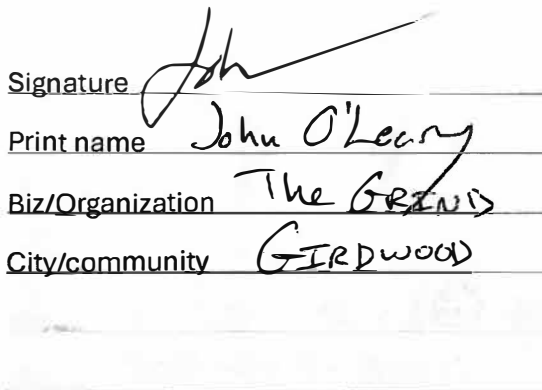 Signature John
Print name John O'Leary
Biz/Organization The GRIND
City/community GIRDWOOD